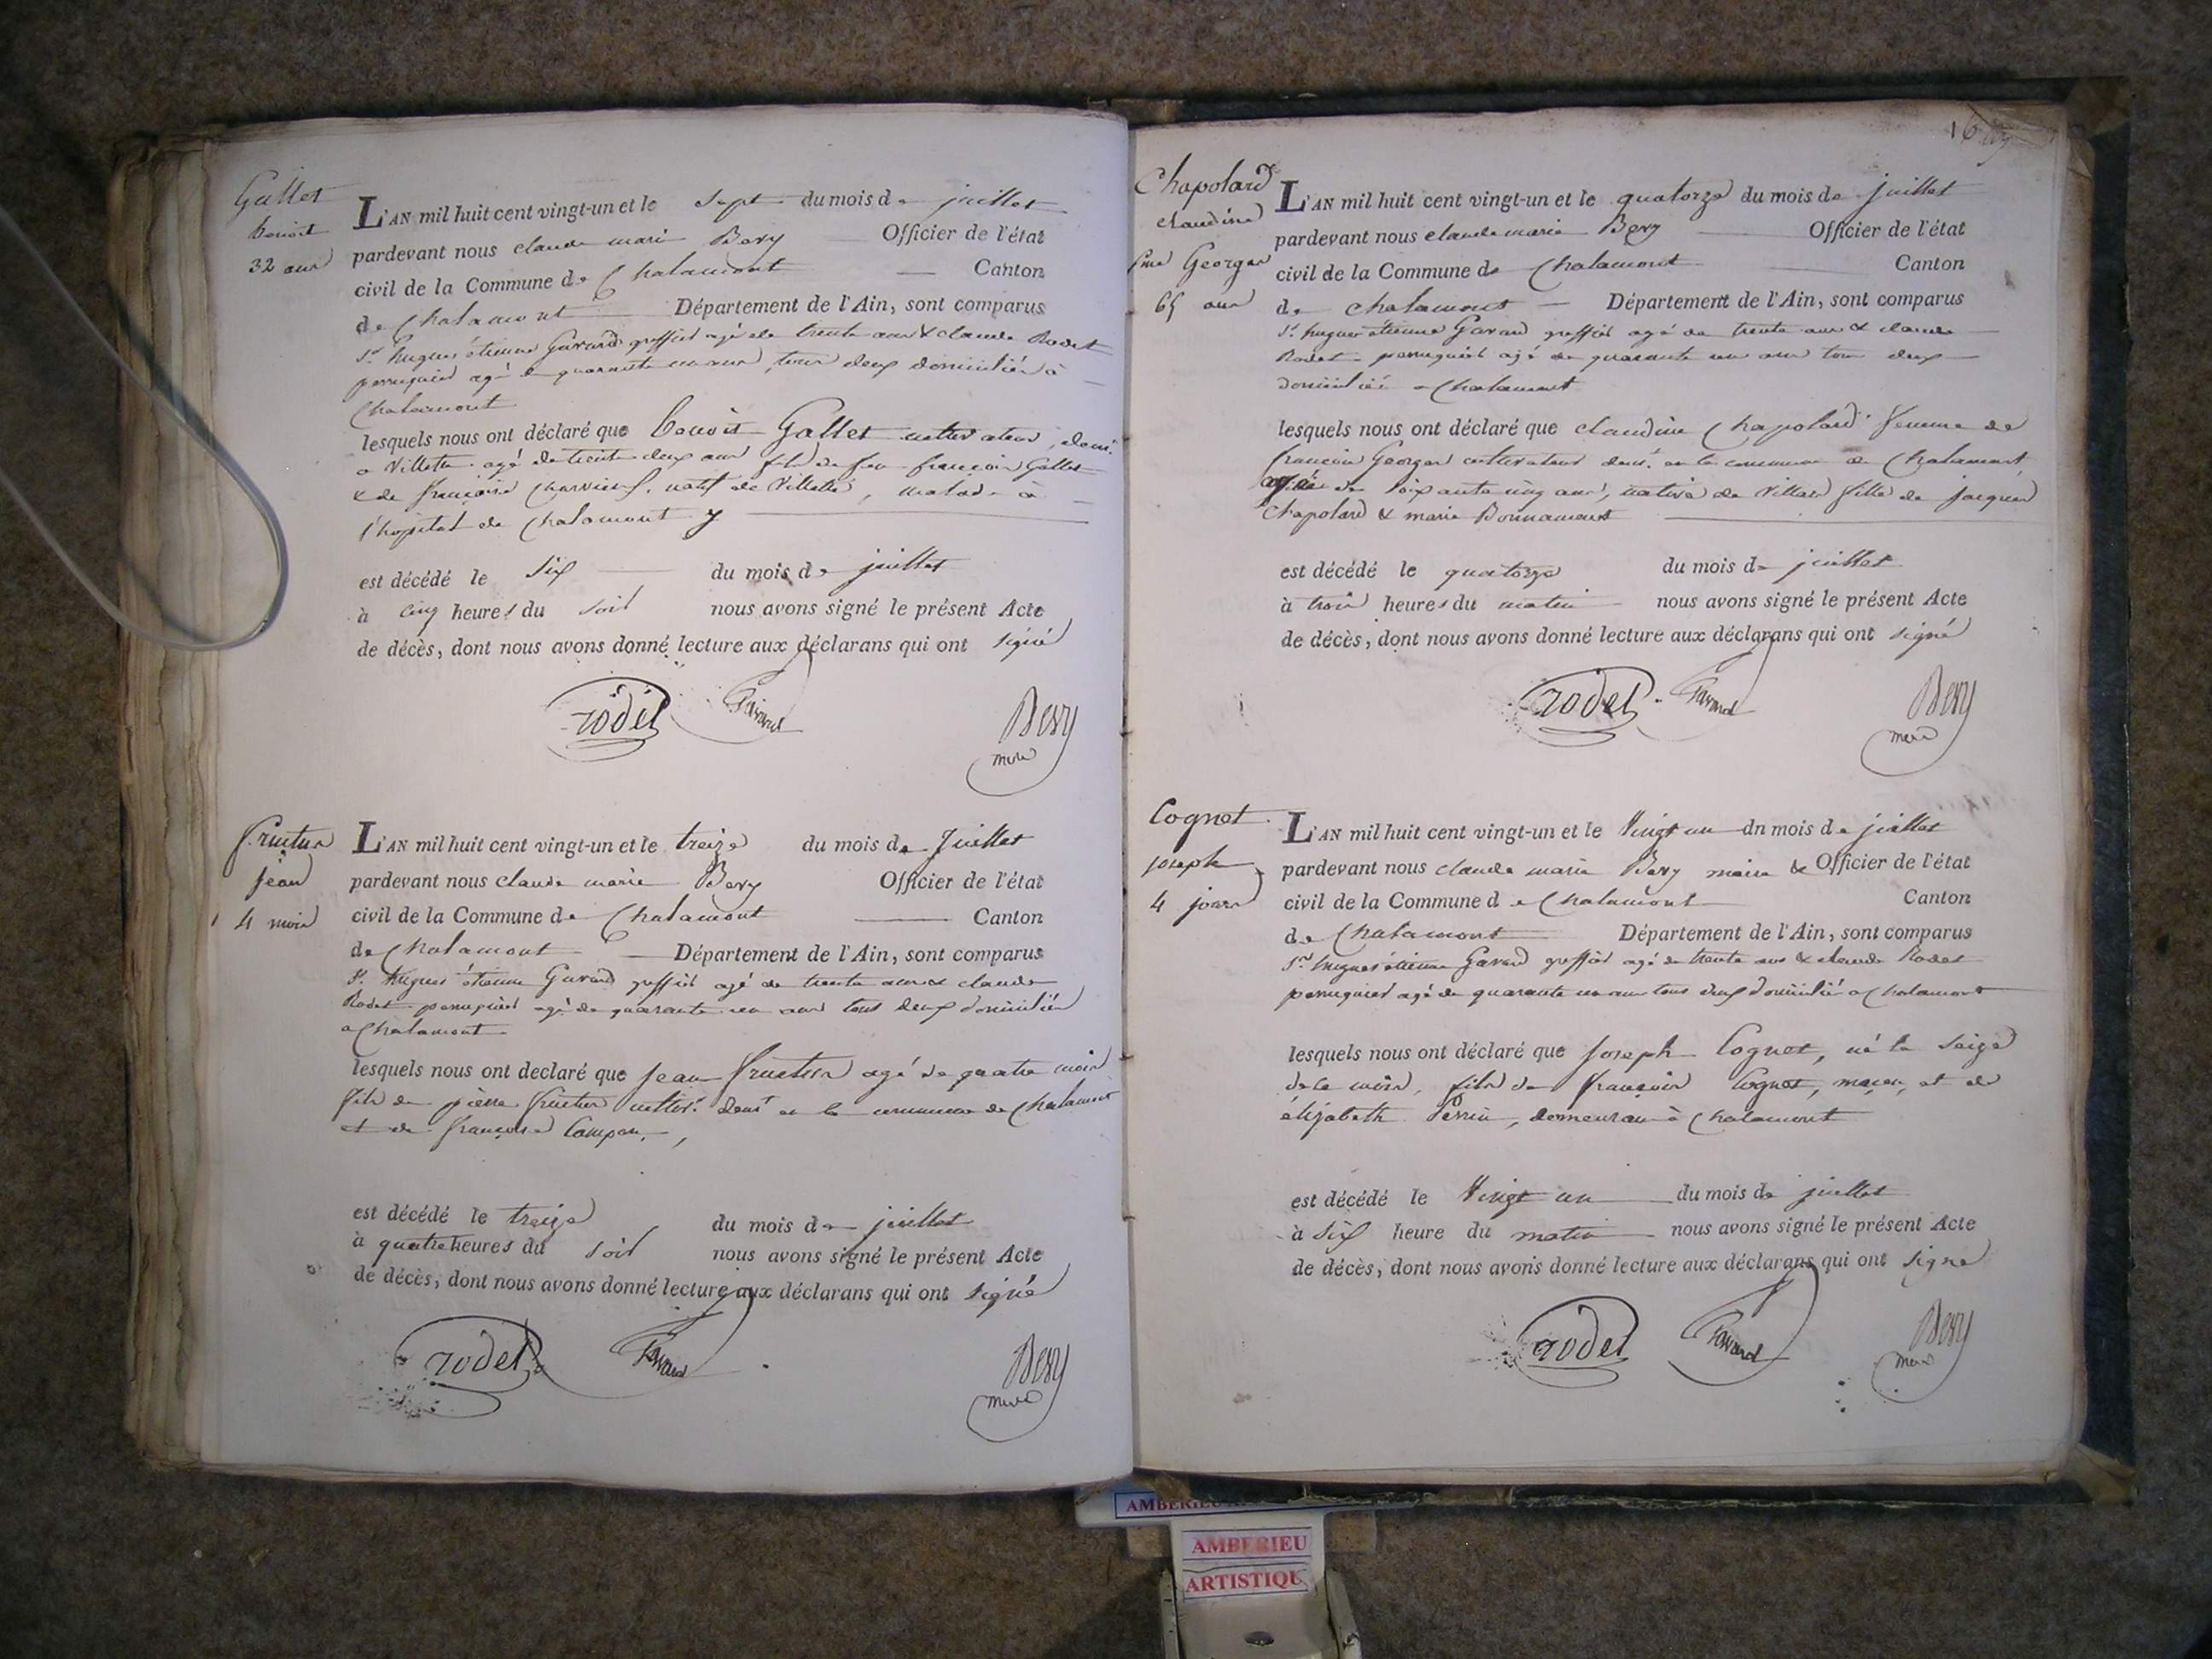 Gallet
benoit
32 ans
L'AN mil huit cent vingt-un et le sept du mois de juillet
pardevant nous claude marie Bery Officier de l'état
civil de la Commune de Chalamont Canton
de Chalamont Département de l'Ain, sont comparus
Sr hugues étienne Gavand greffier agé de trente ans & claude Rodet
perruquier agé de quarante un ans, tous deux domiciliés à
Chalamont
lesquels nous ont déclaré que benoit Gallet cultivateur, demt
a Villette agé de trente deux ans fils de feu françois Gallet
& de françoise, natif de Villette, malade à
l'hopital de Chalamont
est décédé le Six du mois de juillet
à cinq heures du soir nous avons signé le présent Acte
de décès, dont nous avons donné lecture aux déclarans qui ont signé
rodet Gavand Bery
maire
fruitier
jean
4 mois
L'AN mil huit cent vingt-un et le treize du mois de Juillet
pardevant nous claude marie Bery Officier de l'état
civil de la Commune de Chalamont Canton
de Chalamont Département de l'Ain, sont comparus
Sr hugues étienne Gavand greffier agé de trente ans & claude
Rodet perruquier agé de quarante un ans tous deux domiciliés
a Chalamont
lesquels nous ont declaré que jean fruitier agé de quatre mois
fils de pierre fruitier cultivr demt en la commune de Chalamont
et de françoise
est décédé le treize du mois de juillet
à quatre heures du soir nous avons signé le présent Acte
de décès, dont nous avons donné lecture aux déclarans qui ont signé
rodet Gavand Bery
maire
16
Chapolard
claudine
fme Georges
65 ans
L'AN mil huit cent vingt-un et le quatorze du mois de juillet
pardevant nous claude marie Bery Officier de l'état
civil de la Commune de Chalamont Canton
de Chalamont Département de l'Ain, sont comparus
Sr hugues étienne Gavand greffier agé de trente ans & claude
Rodet perruquier agé de quarante un ans tous deux
domiciliés a Chalamont
lesquels nous ont déclaré que claudine Chapolard femme de
françois Georges cultivateur demt en la commune de Chalamont
agée de soixante cinq ans, native de Villars fille de jacques
Chapolard & marie Bonnamour
est décédé le quatorze du mois de juillet
à trois heures du matin nous avons signé le présent Acte
de décès, dont nous avons donné lecture aux déclarans qui ont signé
rodet Gavand Bery
maire
Cognet
joseph
4 jours
L'AN mil huit cent vingt-un et le Vingt un dn mois de juillet
pardevant nous claude marie Bery maire & Officier de l'état
civil de la Commune de Chalamont Canton
de Chalamont Département de l'Ain, sont comparus
Sr hugues étienne Gavand greffier agé de trente ans & claude Rodet
perruquier agé de quarante un ans tous deux domiciliés a Chalamont
lesquels nous ont déclaré que joseph Cognet, né le seize
de ce mois, fils de françois Cognet, maçon, et de
élizabeth Perrin, demeurans à Chalamont
est décédé le Vingt un du mois de juillet
à six heure du matin nous avons signé le présent Acte
de décès, dont nous avons donné lecture aux déclarans qui ont signé
rodet Gavand Bery
maire
AMBERIEU
AMBERIEU
ARTISTIQU